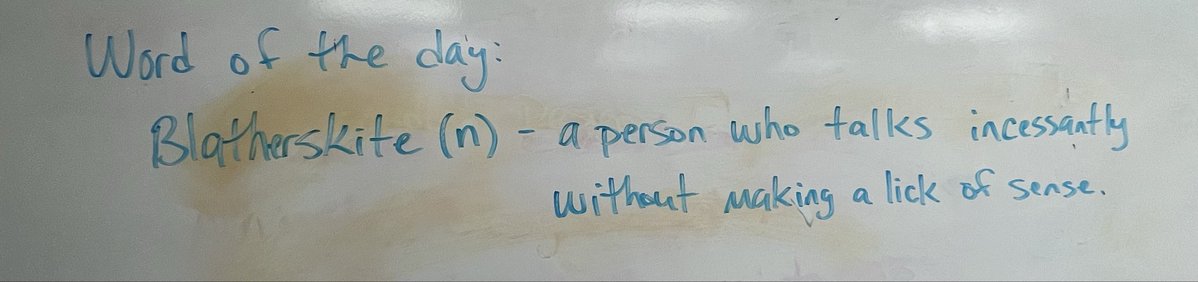 Word of the day:
Blatherskite (n) - a person who talks incessantly
without making a lick of sense.